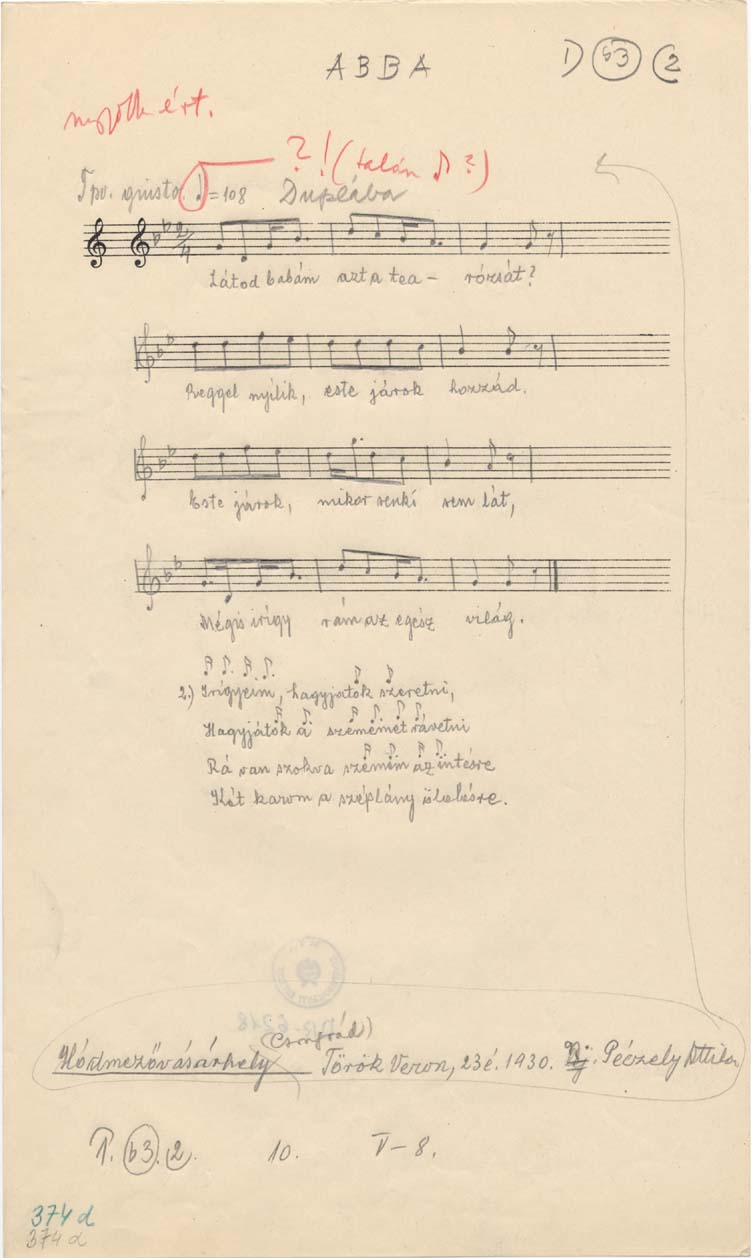 ABBA
1) b3 (2
ért.
?! (talán ♪?)
Tpo. giusto. ♩=108 Duplába
2/4
Látod babám azt a tea- rózsát?
Reggel nyílik, este járok hozzád.
Este járok, mikor senki sem lát,
Mégis irígy rám az egész világ.
2.) Irígyeim, hagyjatok szeretni,
Hagyjátok a szememet rávetni
Rá van szokva szemem az intésre
Két karom a széplány ölelésre.
(Csongrád)
Hódmezővásárhely Török Veron, 23 é. 1930. Gy: Péczely Attila
1. b3. 2. 10. V-8.
374 d
374 d